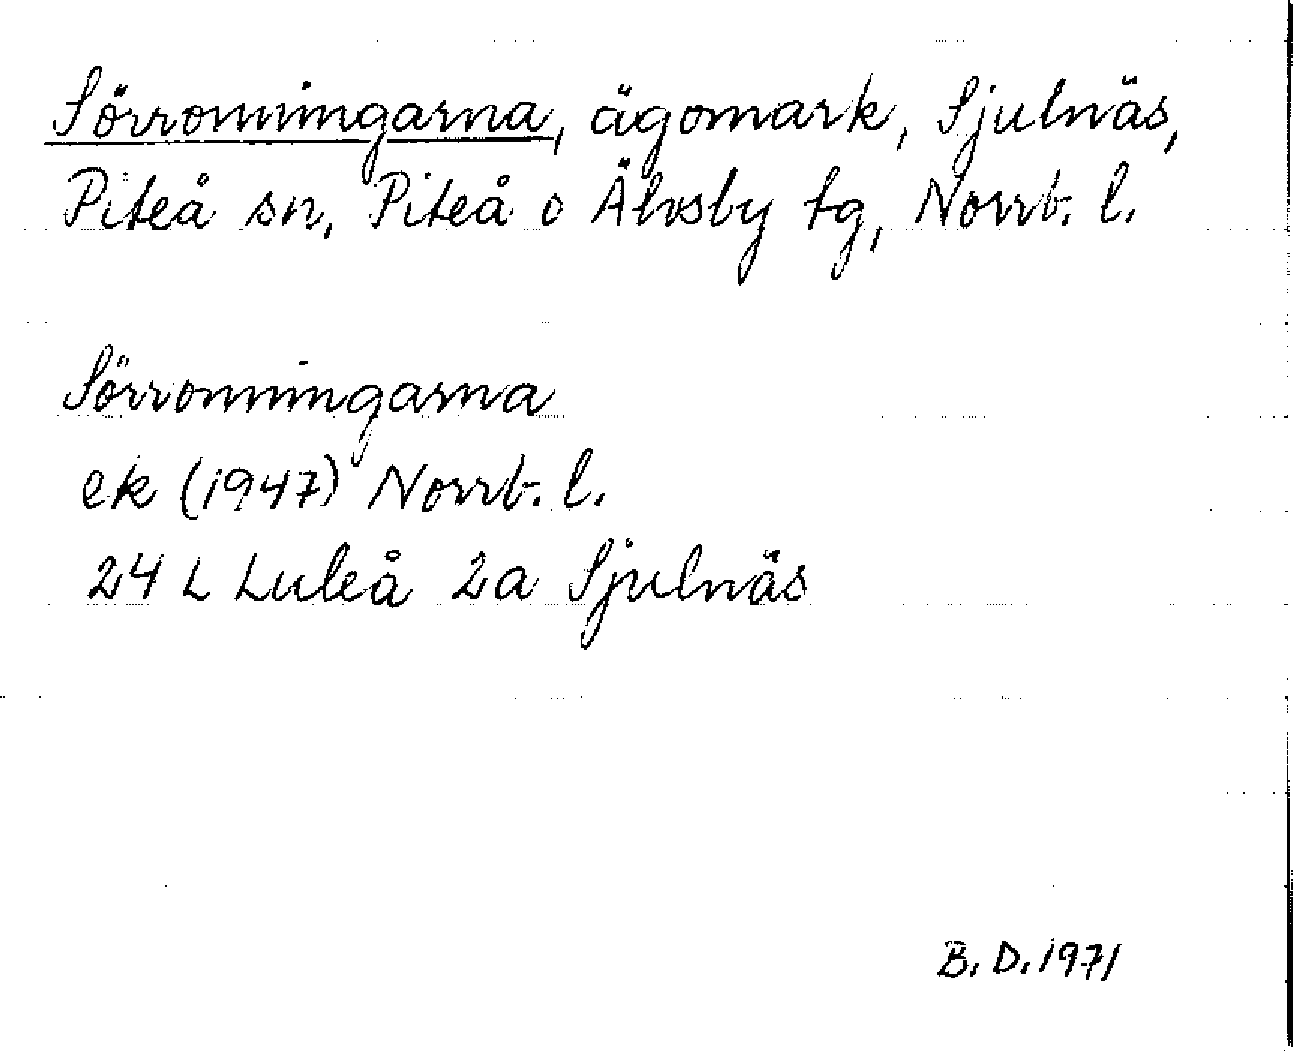 Sörronningarna, ägomark, Sjulnäs,
Piteå sn, Piteå o Älvsby tg, Norrb. l.
Sörronningarna
ek (1947) Norrb. l.
24 L Luleå 2a Sjulnäs
B. D. 1971